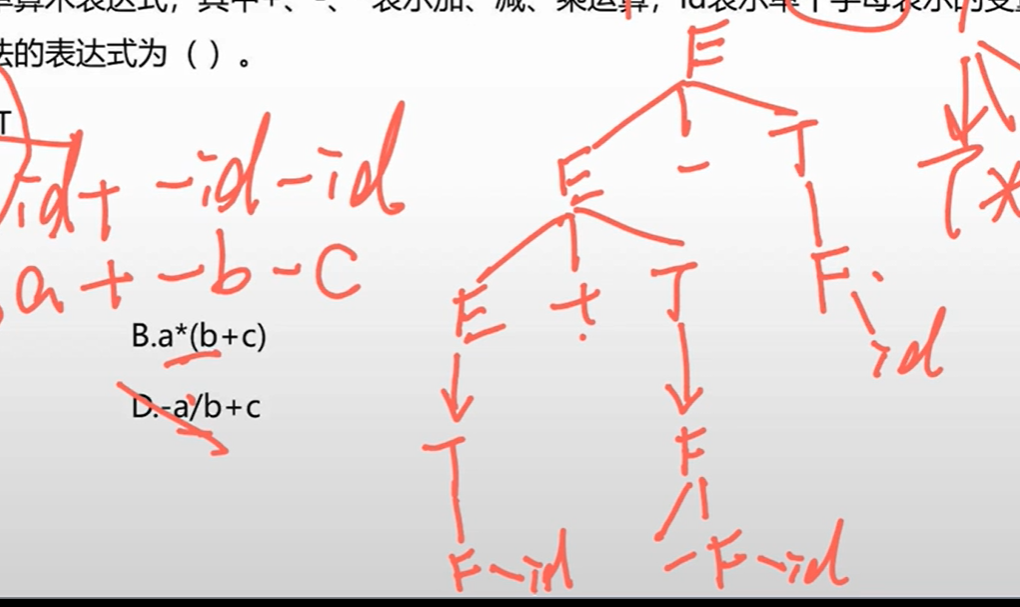 算术表达式，其中+、-、*表示加、减、乘运算，id表示单个字母表示的变
法的表达式为（ ）。
T
id+ -id-id
a+-b-C
B.a*(b+c)
D.-a/b+c
E
E - T
E + T F
id
T F
F-id -F-id
*